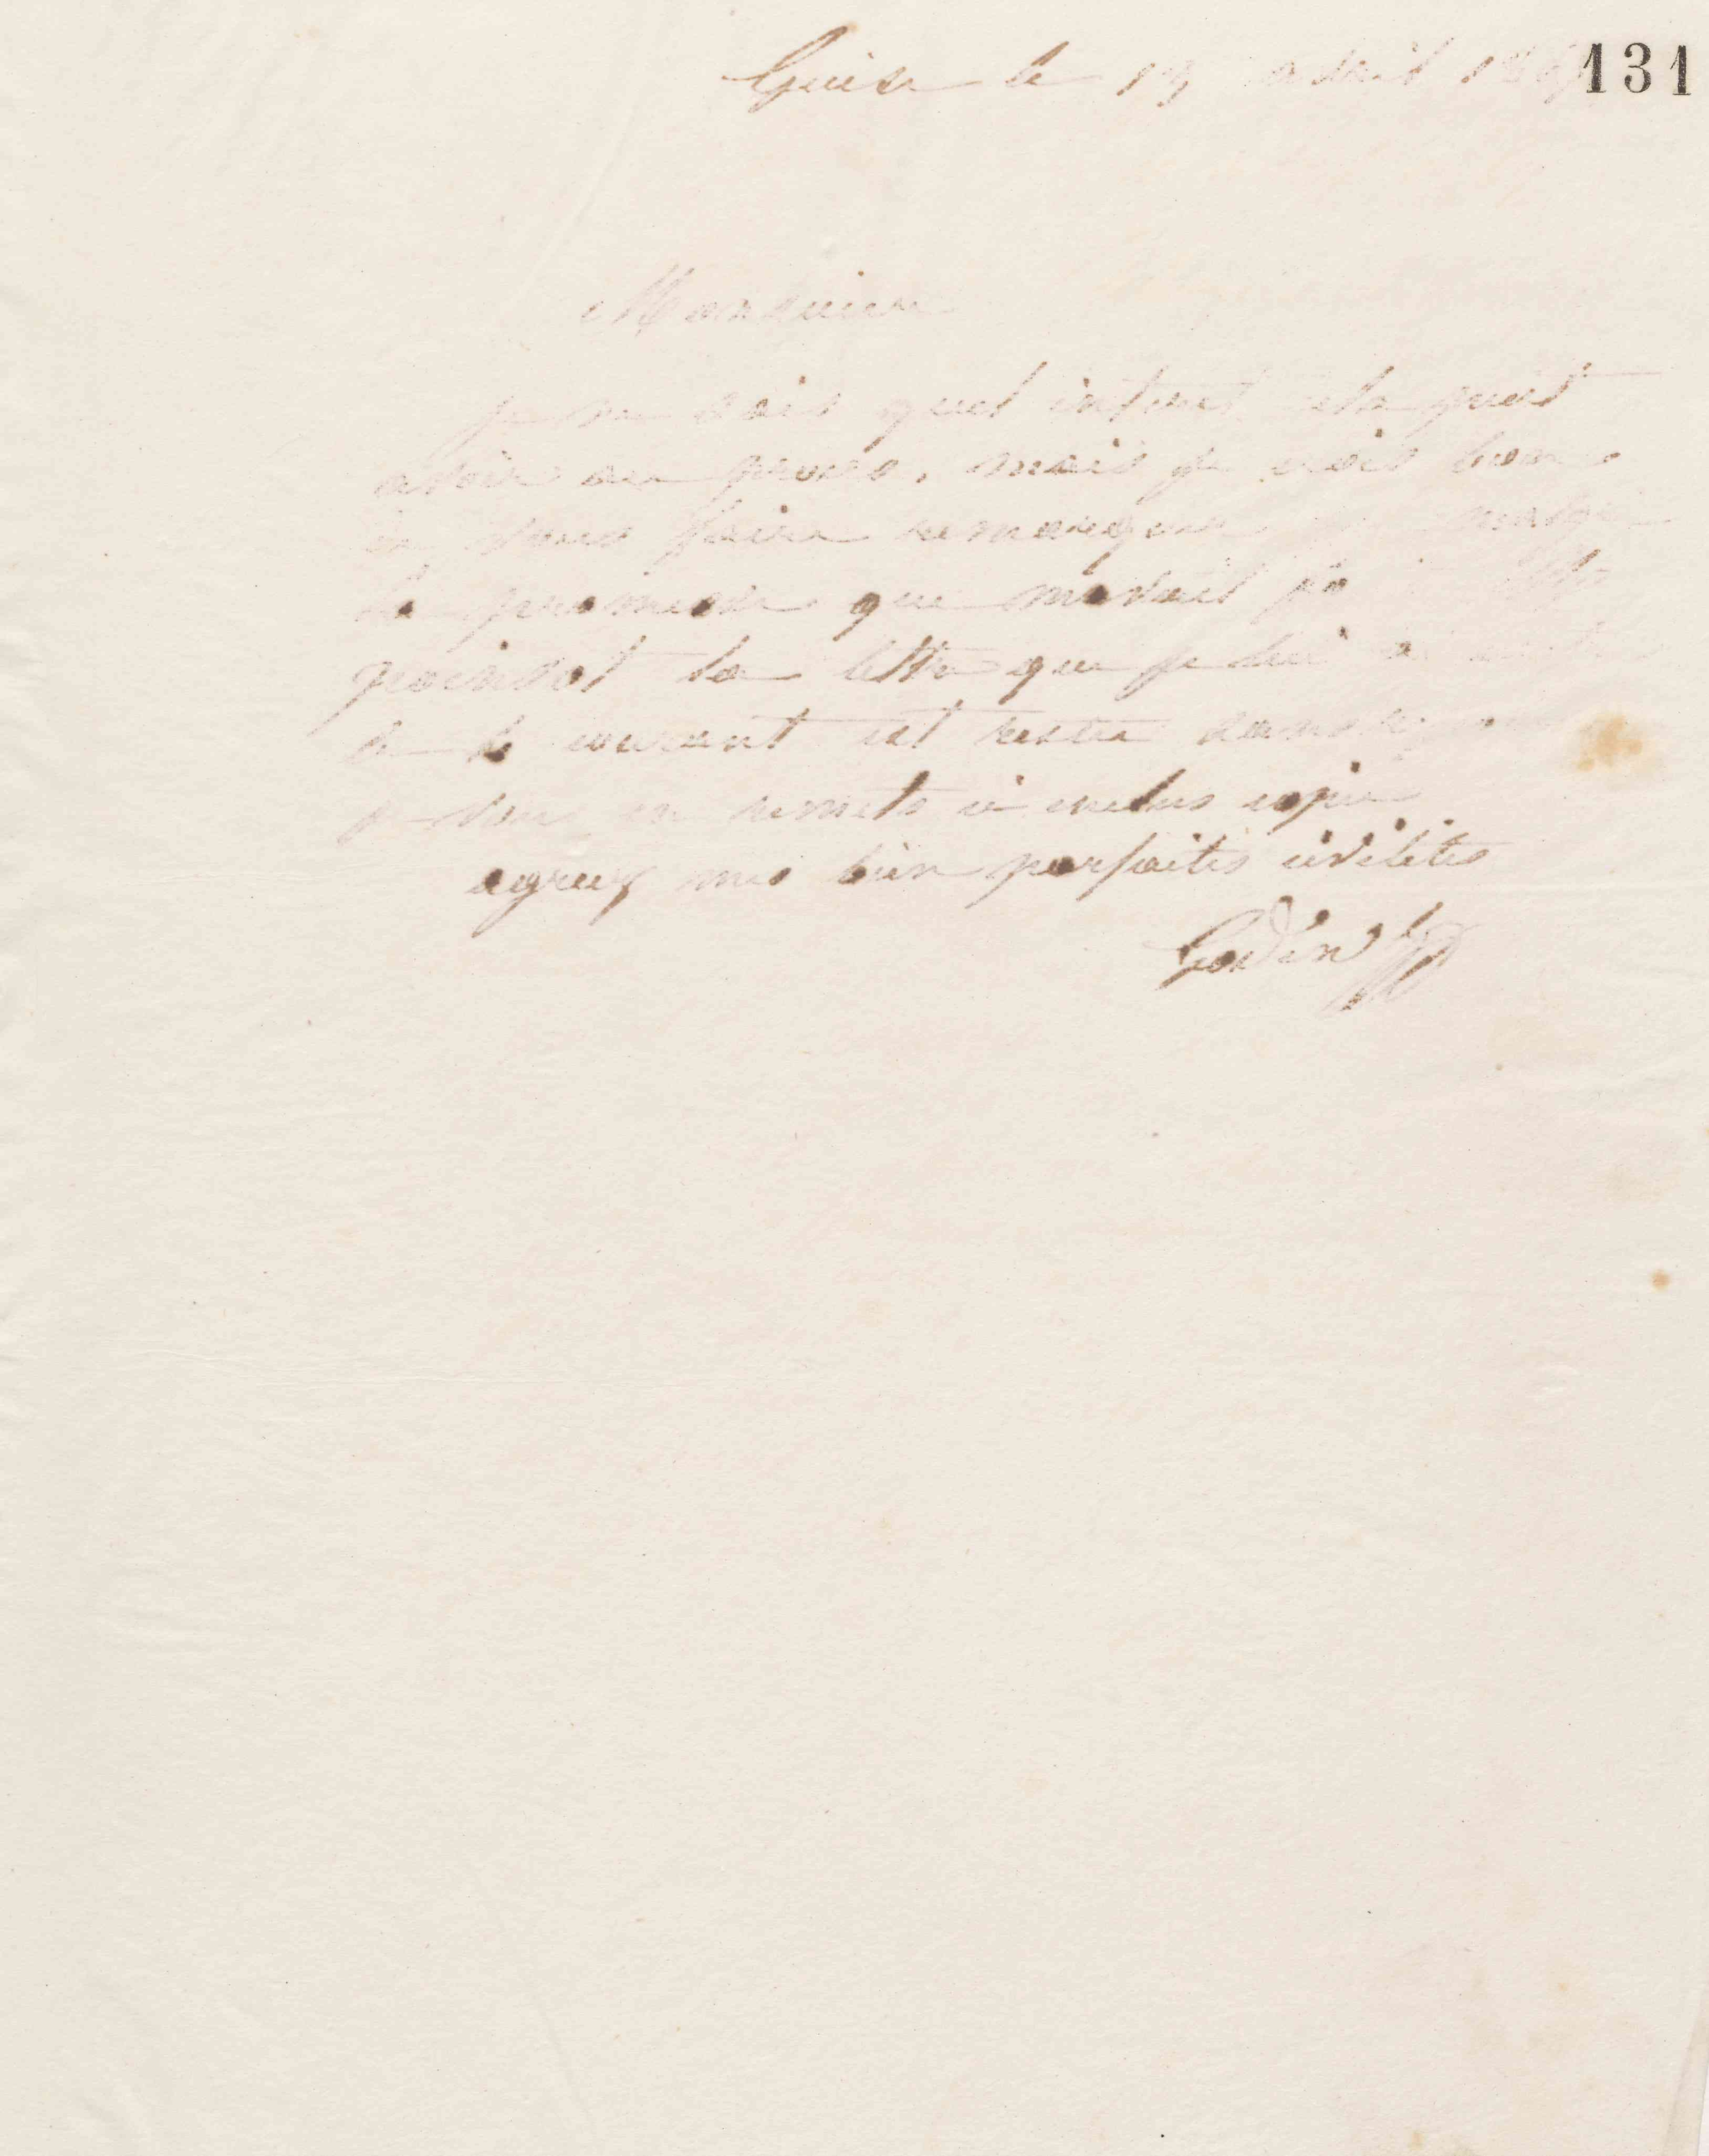 Guise le 13 avril 186 131
Monsieur
je ne sais quel interet cela peut
avoir au proces, mais je crois bon
de vous faire remarquer malgre
la promesse que m'avait
poindot la lettre que je lui ai
le courant est restée sans
je vous en remets ci inclus copie
agreez mes bien parfaites civilités
Godin